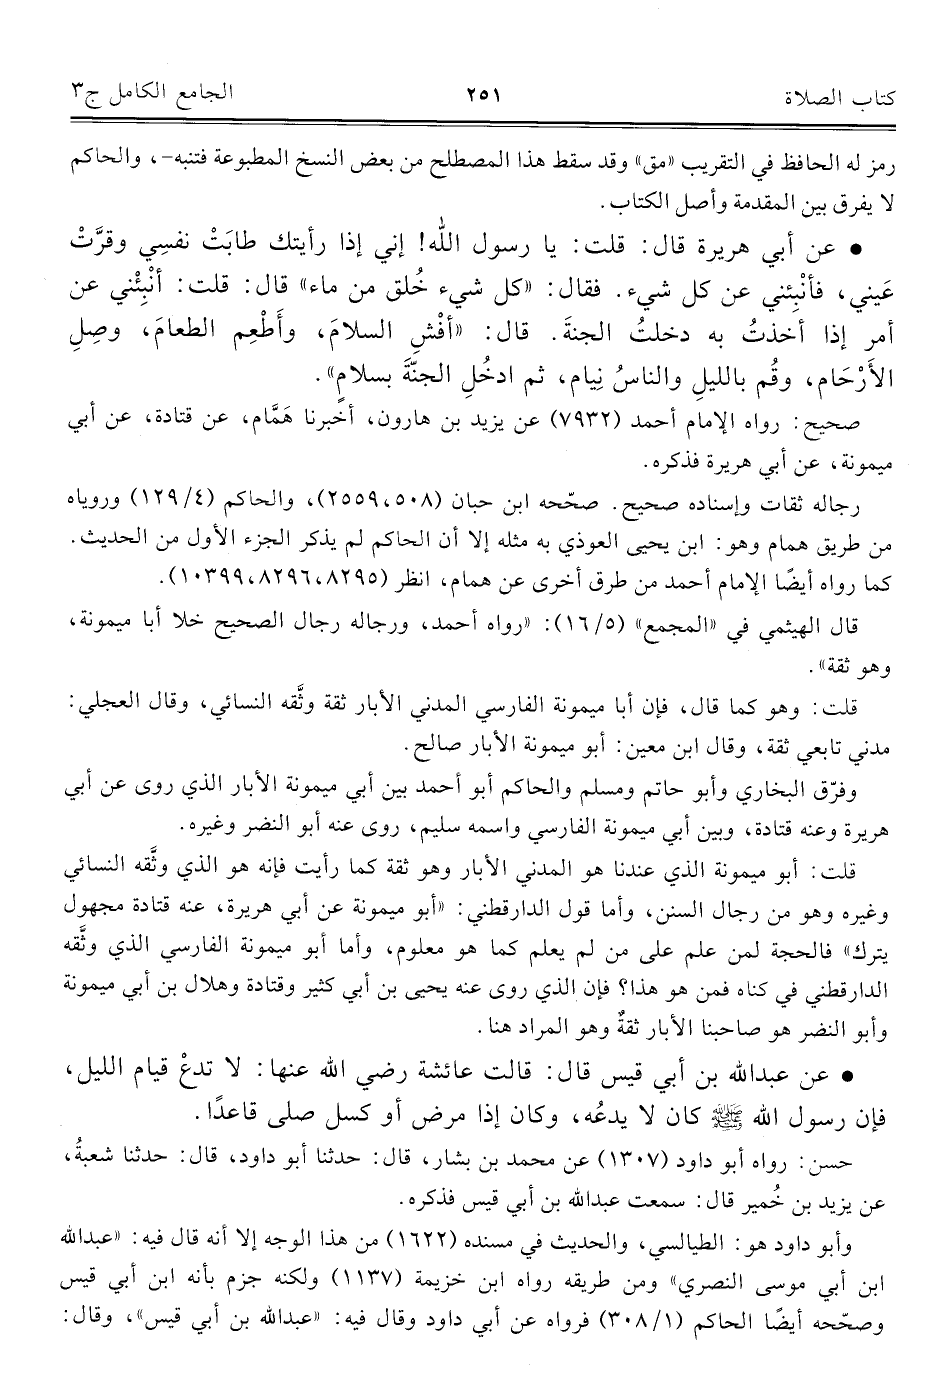 كتاب الصلاة ٢٥١ الجامع الكامل ج٣
رمز له الحافظ في التقريب «مق» وقد سقط هذا المصطلح من بعض النسخ المطبوعة فتنبه-، والحاكم
لا يفرق بين المقدمة وأصل الكتاب.
• عن أبي هريرة قال: قلت: يا رسول الله! إني إذا رأيتك طابَتْ نفسِي وقرَّتْ
عَيني، فأنْبِئني عن كل شيء. فقال: «كل شيء خُلق من ماء» قال: قلت: أنْبِئْني عن
أمر إذا أخذتُ به دخلتُ الجنةَ. قال: «أفْشِ السلامَ، وأَطْعِم الطعامَ، وصِلِ
الأَرْحَام، وقُم بالليلِ والناسُ نِيام، ثم ادخُلِ الجنّةَ بسلامٍ».
صحيح: رواه الإمام أحمد (٧٩٣٢) عن يزيد بن هارون، أخبرنا هَمَّام، عن قتادة، عن أبي
ميمونة، عن أبي هريرة فذكره.
رجاله ثقات وإسناده صحيح. صحّحه ابن حبان (٢٥٥٩،٥٠٨)، والحاكم (١٢٩/٤) وروياه
من طريق همام وهو: ابن يحيى العوذي به مثله إلا أن الحاكم لم يذكر الجزء الأول من الحديث.
كما رواه أيضًا الإمام أحمد من طرق أخرى عن همام، انظر (١٠٣٩٩،٨٢٩٦،٨٢٩٥).
قال الهيثمي في «المجمع» (١٦/٥): «رواه أحمد، ورجاله رجال الصحيح خلا أبا ميمونة،
وهو ثقة».
قلت: وهو كما قال، فإن أبا ميمونة الفارسي المدني الأبار ثقة وثَّقه النسائي، وقال العجلي:
مدني تابعي ثقة، وقال ابن معين: أبو ميمونة الأبار صالح.
وفرّق البخاري وأبو حاتم ومسلم والحاكم أبو أحمد بين أبي ميمونة الأبار الذي روى عن أبي
هريرة وعنه قتادة، وبين أبي ميمونة الفارسي واسمه سليم، روى عنه أبو النضر وغيره.
قلت: أبو ميمونة الذي عندنا هو المدني الأبار وهو ثقة كما رأيت فإنه هو الذي وثَّقه النسائي
وغيره وهو من رجال السنن، وأما قول الدارقطني: «أبو ميمونة عن أبي هريرة، عنه قتادة مجهول
يترك» فالحجة لمن علم على من لم يعلم كما هو معلوم، وأما أبو ميمونة الفارسي الذي وثَّقه
الدارقطني في كناه فمن هو هذا؟ فإن الذي روى عنه يحيى بن أبي كثير وقتادة وهلال بن أبي ميمونة
وأبو النضر هو صاحبنا الأبار ثقةٌ وهو المراد هنا.
• عن عبدالله بن أبي قيس قال: قالت عائشة رضي الله عنها: لا تدعْ قيام الليل،
فإن رسول الله ﷺ كان لا يدعُه، وكان إذا مرض أو كسل صلى قاعدًا.
حسن: رواه أبو داود (١٣٠٧) عن محمد بن بشار، قال: حدثنا أبو داود، قال: حدثنا شعبةُ،
عن يزيد بن خُمير قال: سمعت عبدالله بن أبي قيس فذكره.
وأبو داود هو: الطيالسي، والحديث في مسنده (١٦٢٢) من هذا الوجه إلا أنه قال فيه: «عبدالله
ابن أبي موسى النصري» ومن طريقه رواه ابن خزيمة (١١٣٧) ولكنه جزم بأنه ابن أبي قيس
وصحّحه أيضًا الحاكم (٣٠٨/١) فرواه عن أبي داود وقال فيه: «عبدالله بن أبي قيس»، وقال: